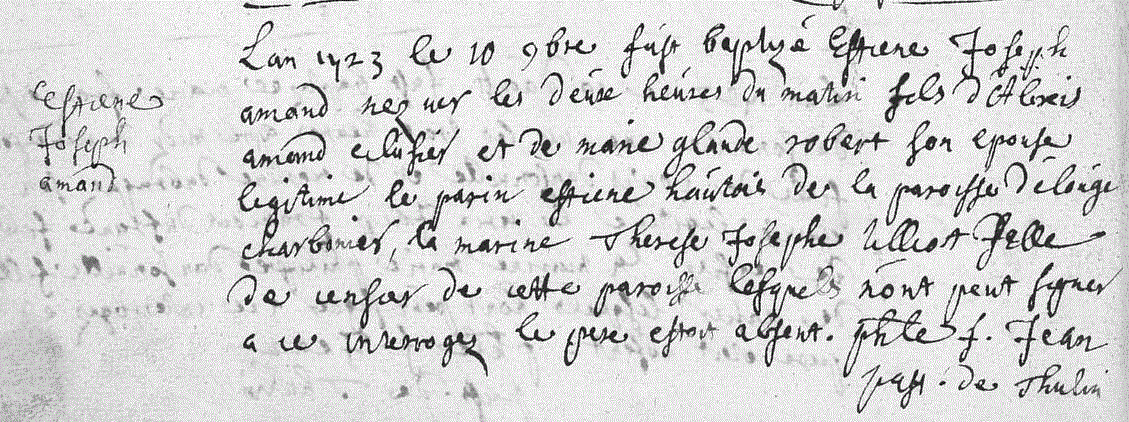 Lan 1723 le 10 9bre fust baptizé Estiene Joseph
Estiene
Joseph
amand
amand ne ver les deuxe heures du matin fils d'Alexis
amand eclusier et de marie glaude robert son epouse
legitime le parin estiene hautois de la paroisse d'élouge
charbonier, la marine Therese Josephe ulliot fille
de censier de cette paroisse lesquels n'ont peut signer
a ce interrogez le pere estoit absent. f. Jean
past. de Thulin